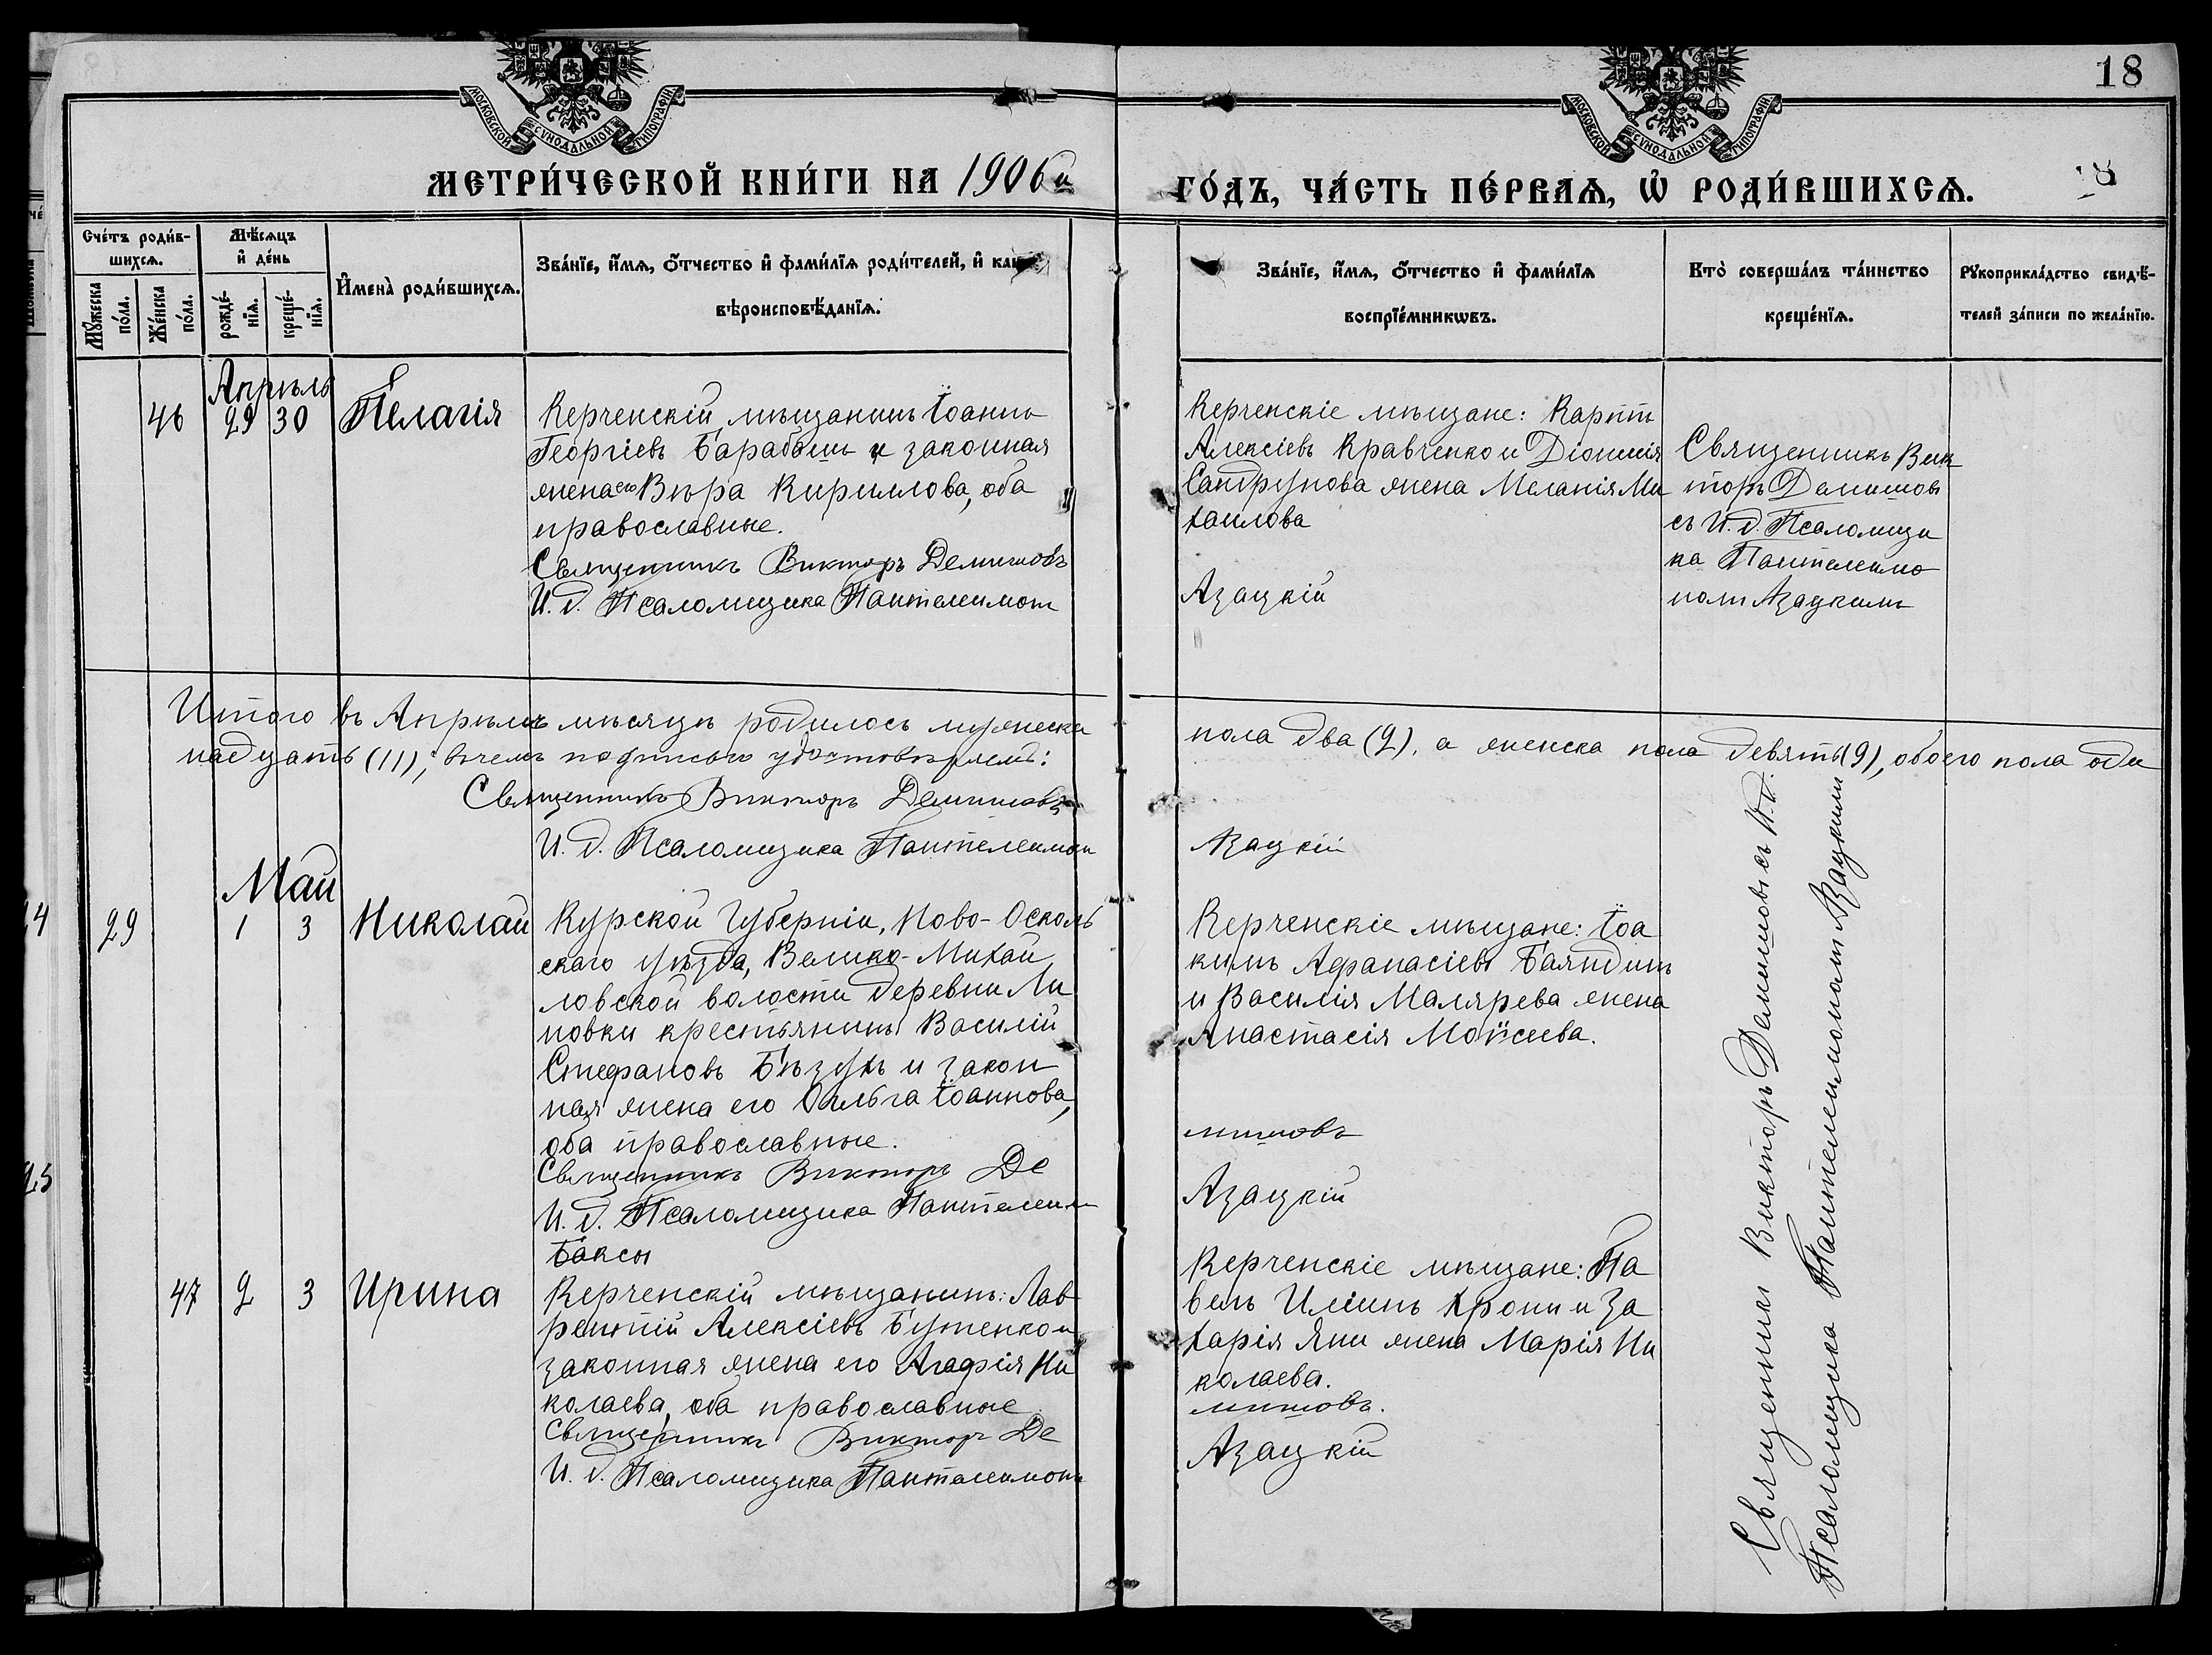 МОСКОВСКОЙ СѴНОДАЛЬНОЙ ТИПОГРАФІИ
МОСКОВСКОЙ СѴНОДАЛЬНОЙ ТИПОГРАФІИ
18
МЕТРИ́ЧЕСКОЙ КНИ́ГИ НА 1906й
ГО́ДЪ, ЧА́СТЬ ПЕ́РВАѦ, Ѡ҆ РОДИ́ВШИХСѦ.
18
Сче́тъ роди́в-
шихсѧ.
Мꙋ́жеска по́ла.
Же́нска по́ла.
Мѣ́сѧцъ
и҆ де́нь
рожде́-
нїѧ.
креще́-
нїѧ.
И҆мена̀ роди́вшихсѧ.
Зва́нїе, и҆́мѧ, ѻ҆́тчество и҆ фами́лїѧ роди́телей, и҆ как
вѣроисповѣ́данїѧ.
Зва́нїе, и҆́мѧ, ѻ҆́тчество и҆ фами́лїѧ
воспрїе́мникѡвъ.
Кто̀ соверша́лъ та́инство
креще́нїѧ.
Рꙋкоприкла́дство свидѣ́-
телей за́писи по жела́нїю.
Апрѣль
46 29 30 Пелагія
Керченскій мѣщанинъ Іоаннъ
Георгіевъ Барабашъ и законная
жена его Вѣра Кириллова, оба
православные.
Священникъ Викторъ Демишовъ
И. д. Псаломщика Пантелеимонъ
Керченскіе мѣщане: Карпъ
Алексіевъ Кравченко и Діонисія
Сандрунова жена Меланія Ми
хаилова
Азацкій
Священникъ Вик
торъ Демишовъ
съ И. д. Псаломщи
ка Пантелеимо
номъ Азацкимъ
Итого въ Апрѣлѣ мѣсяцѣ родилось мужеска
пола два (2), а женска пола девять (9), обоего пола оди
надцать (11), въ чемъ подписью удостовѣряемъ:
Священникъ Викторъ Демишовъ
И. д. Псаломщика Пантелеимонъ
Азацкій
Май
29 1 3 Николай
Курской Губерніи, Ново-Осколь
скаго уѣзда, Велико-Михай
ловской волости деревни Ли
повки крестьянинъ Василій
Стефановъ Бѣзухъ и закон
ная жена его Ольга Іоаннова,
оба православные.
Священникъ Викторъ Де
И. д. Псаломщика Пантелеим
Керченскіе мѣщане: Іоа
кимъ Афанасіевъ Баяндинъ
и Василія Малярева жена
Анастасія Моисеева.
мишовъ
Азацкій
Баксы
47 2 3 Ирина
Керченскій мѣщанинъ: Лав
рентій Алексіевъ Бутенко и
законная жена его Агафія Ни
колаева, оба православные
Священникъ Викторъ Де
И. д. Псаломщика Пантелеимонъ
Керченскіе мѣщане: Па
велъ Иліинъ Хрони и За
харія Яни жена Марія Ни
колаева.
мишовъ.
Азацкій
Священникъ Викторъ Демишовъ съ И. д.
Псаломщика Пантелеимономъ Азацкимъ